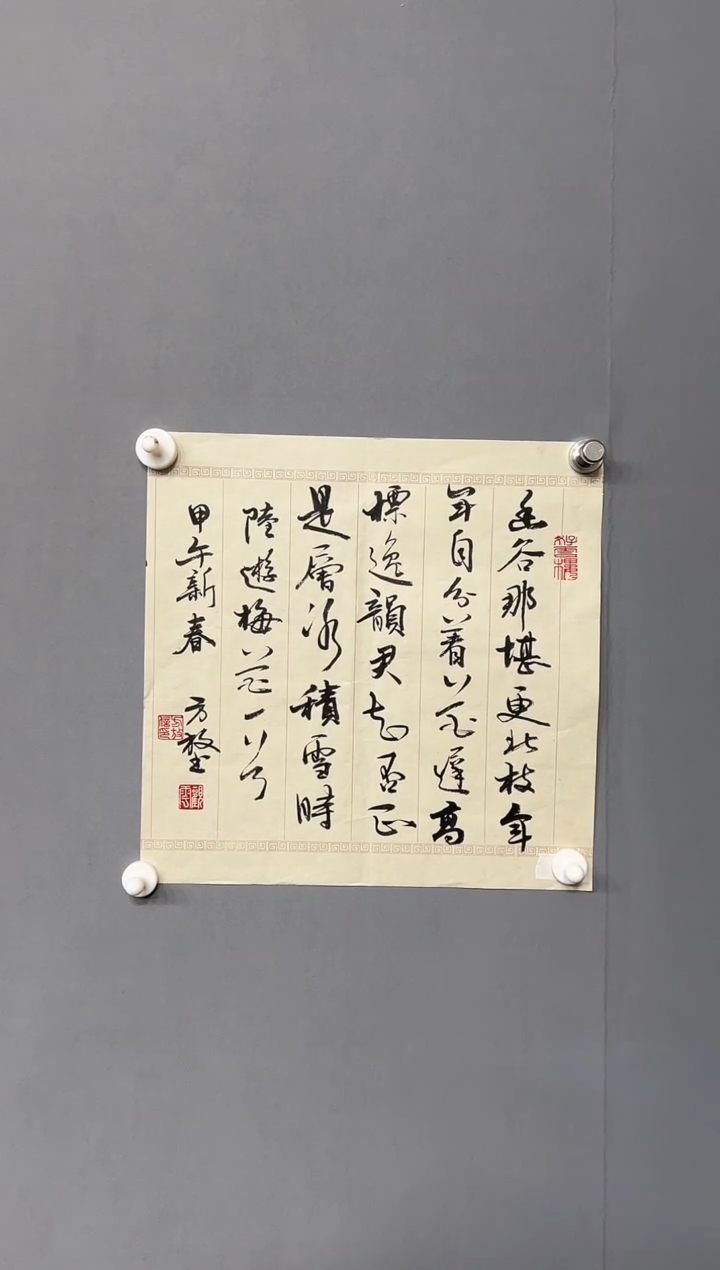 幽谷那堪更北枝年
年自分着花遲高
標逸韻君知否正
是層冰積雪時
陸遊梅花一首
甲午新春 方